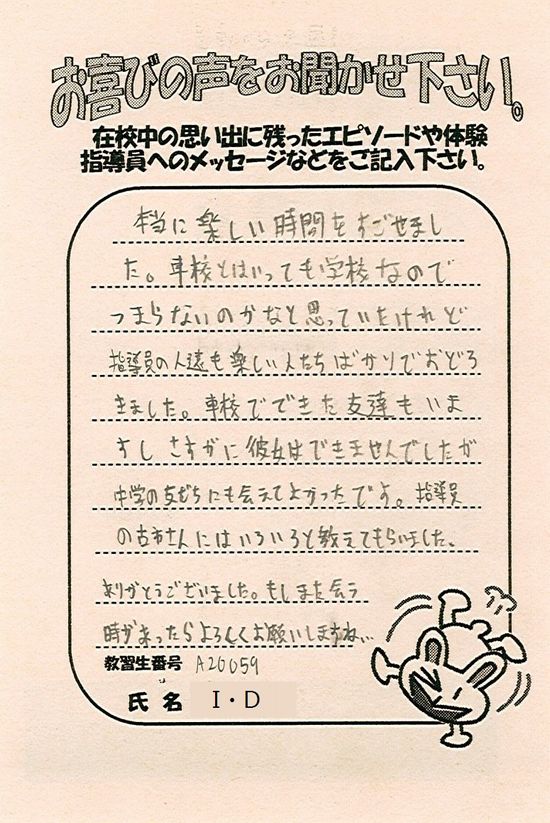 お喜びの声をお聞かせ下さい。
在校中の思い出に残ったエピソードや体験
指導員へのメッセージなどをご記入下さい。
本当に楽しい時間をすごせまし
た。車校とはいっても学校なので
つまらないのかなと思っていたけれど
指導員の人達も楽しい人たちばかりでおどろ
きました。車校でできた友達もいま
すし さすがに彼女はできませんでしたが
中学の友だちにも会えてよかったです。指導員
の古市さんにはいろいろと教えてもらいました。
ありがとうございました。もしまた会う
時があったらよろしくお願いしますね...
教習生番号 A20059
氏名 I・D